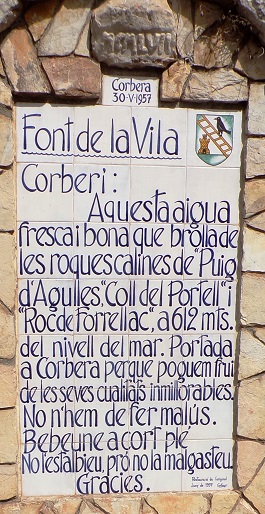 Corbera
30-V-1957
Font de la Vila
Corberí:
Aquesta aigua
fresca i bona que brolla de
les roques calines de "Puig
d'Agulles, "Coll del Portell" i
"Roc de Forrellac", a 612 mts.
del nivell del mar. Portada
a Corbera perque poguem frui
de les seves cualitats inmillorables.
No n'hem de fer malús.
Bebeune a cort plé
No l'estalbieu, pró no la malgasteu.
Gràcies.